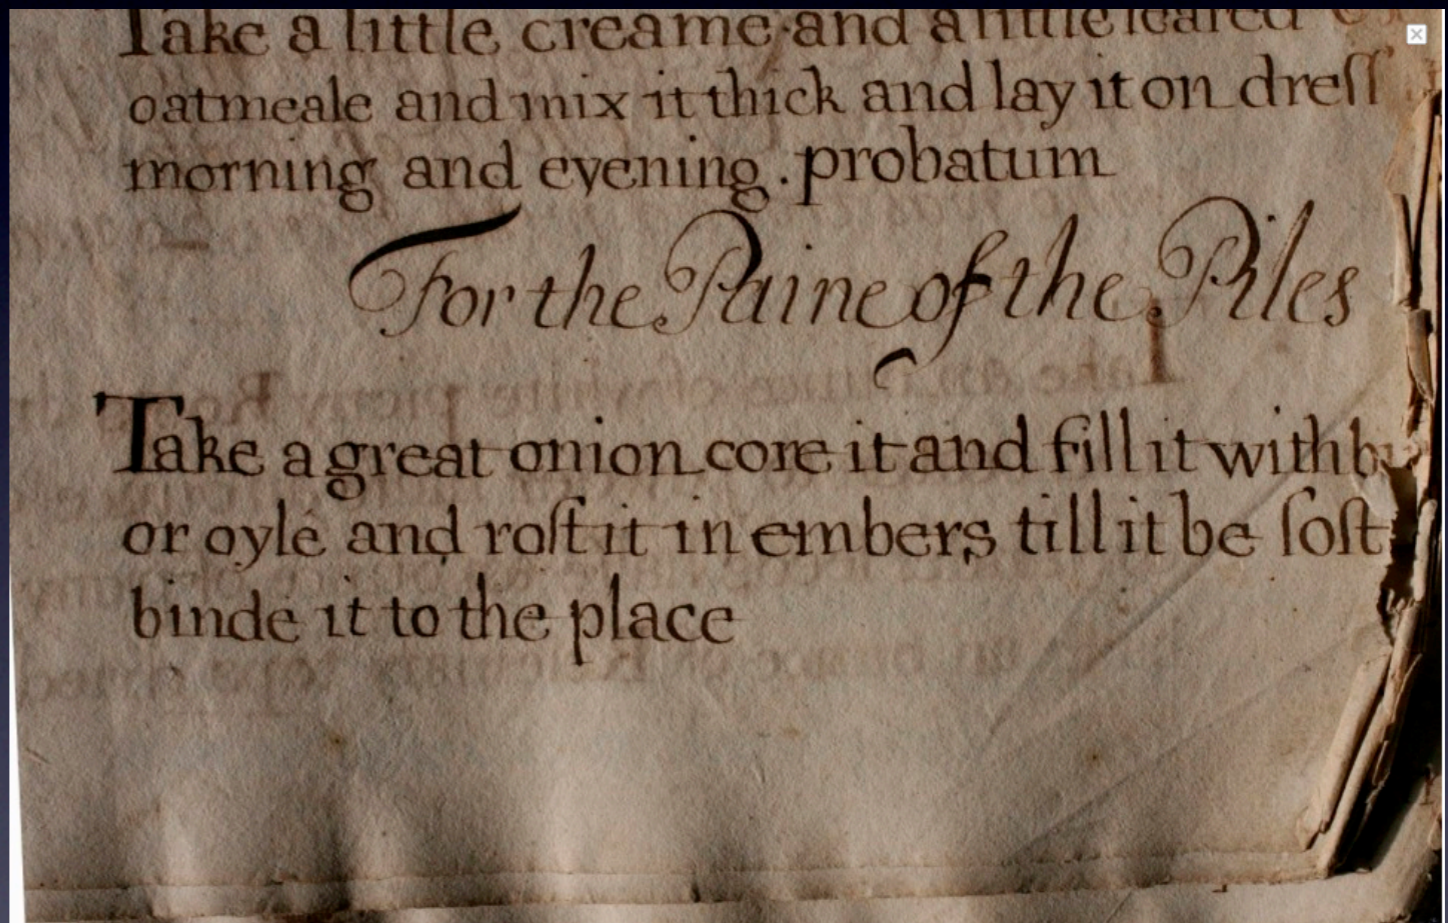 Take a little creame and a little seared
oatmeale and mix it thick and lay it on dreſſ
morning and evening . probatum
For the Paine of the Piles
Take a great onion core it and fill it with
or oyle and roſt it in embers till it be ſoft
binde it to the place